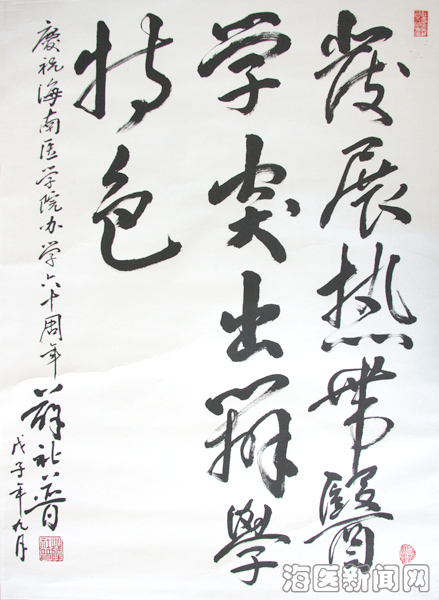 發展热带醫
学突出辦學
特色
慶祝海南医学院办学六十周年
薛社普
戊子年九月
海医新闻网